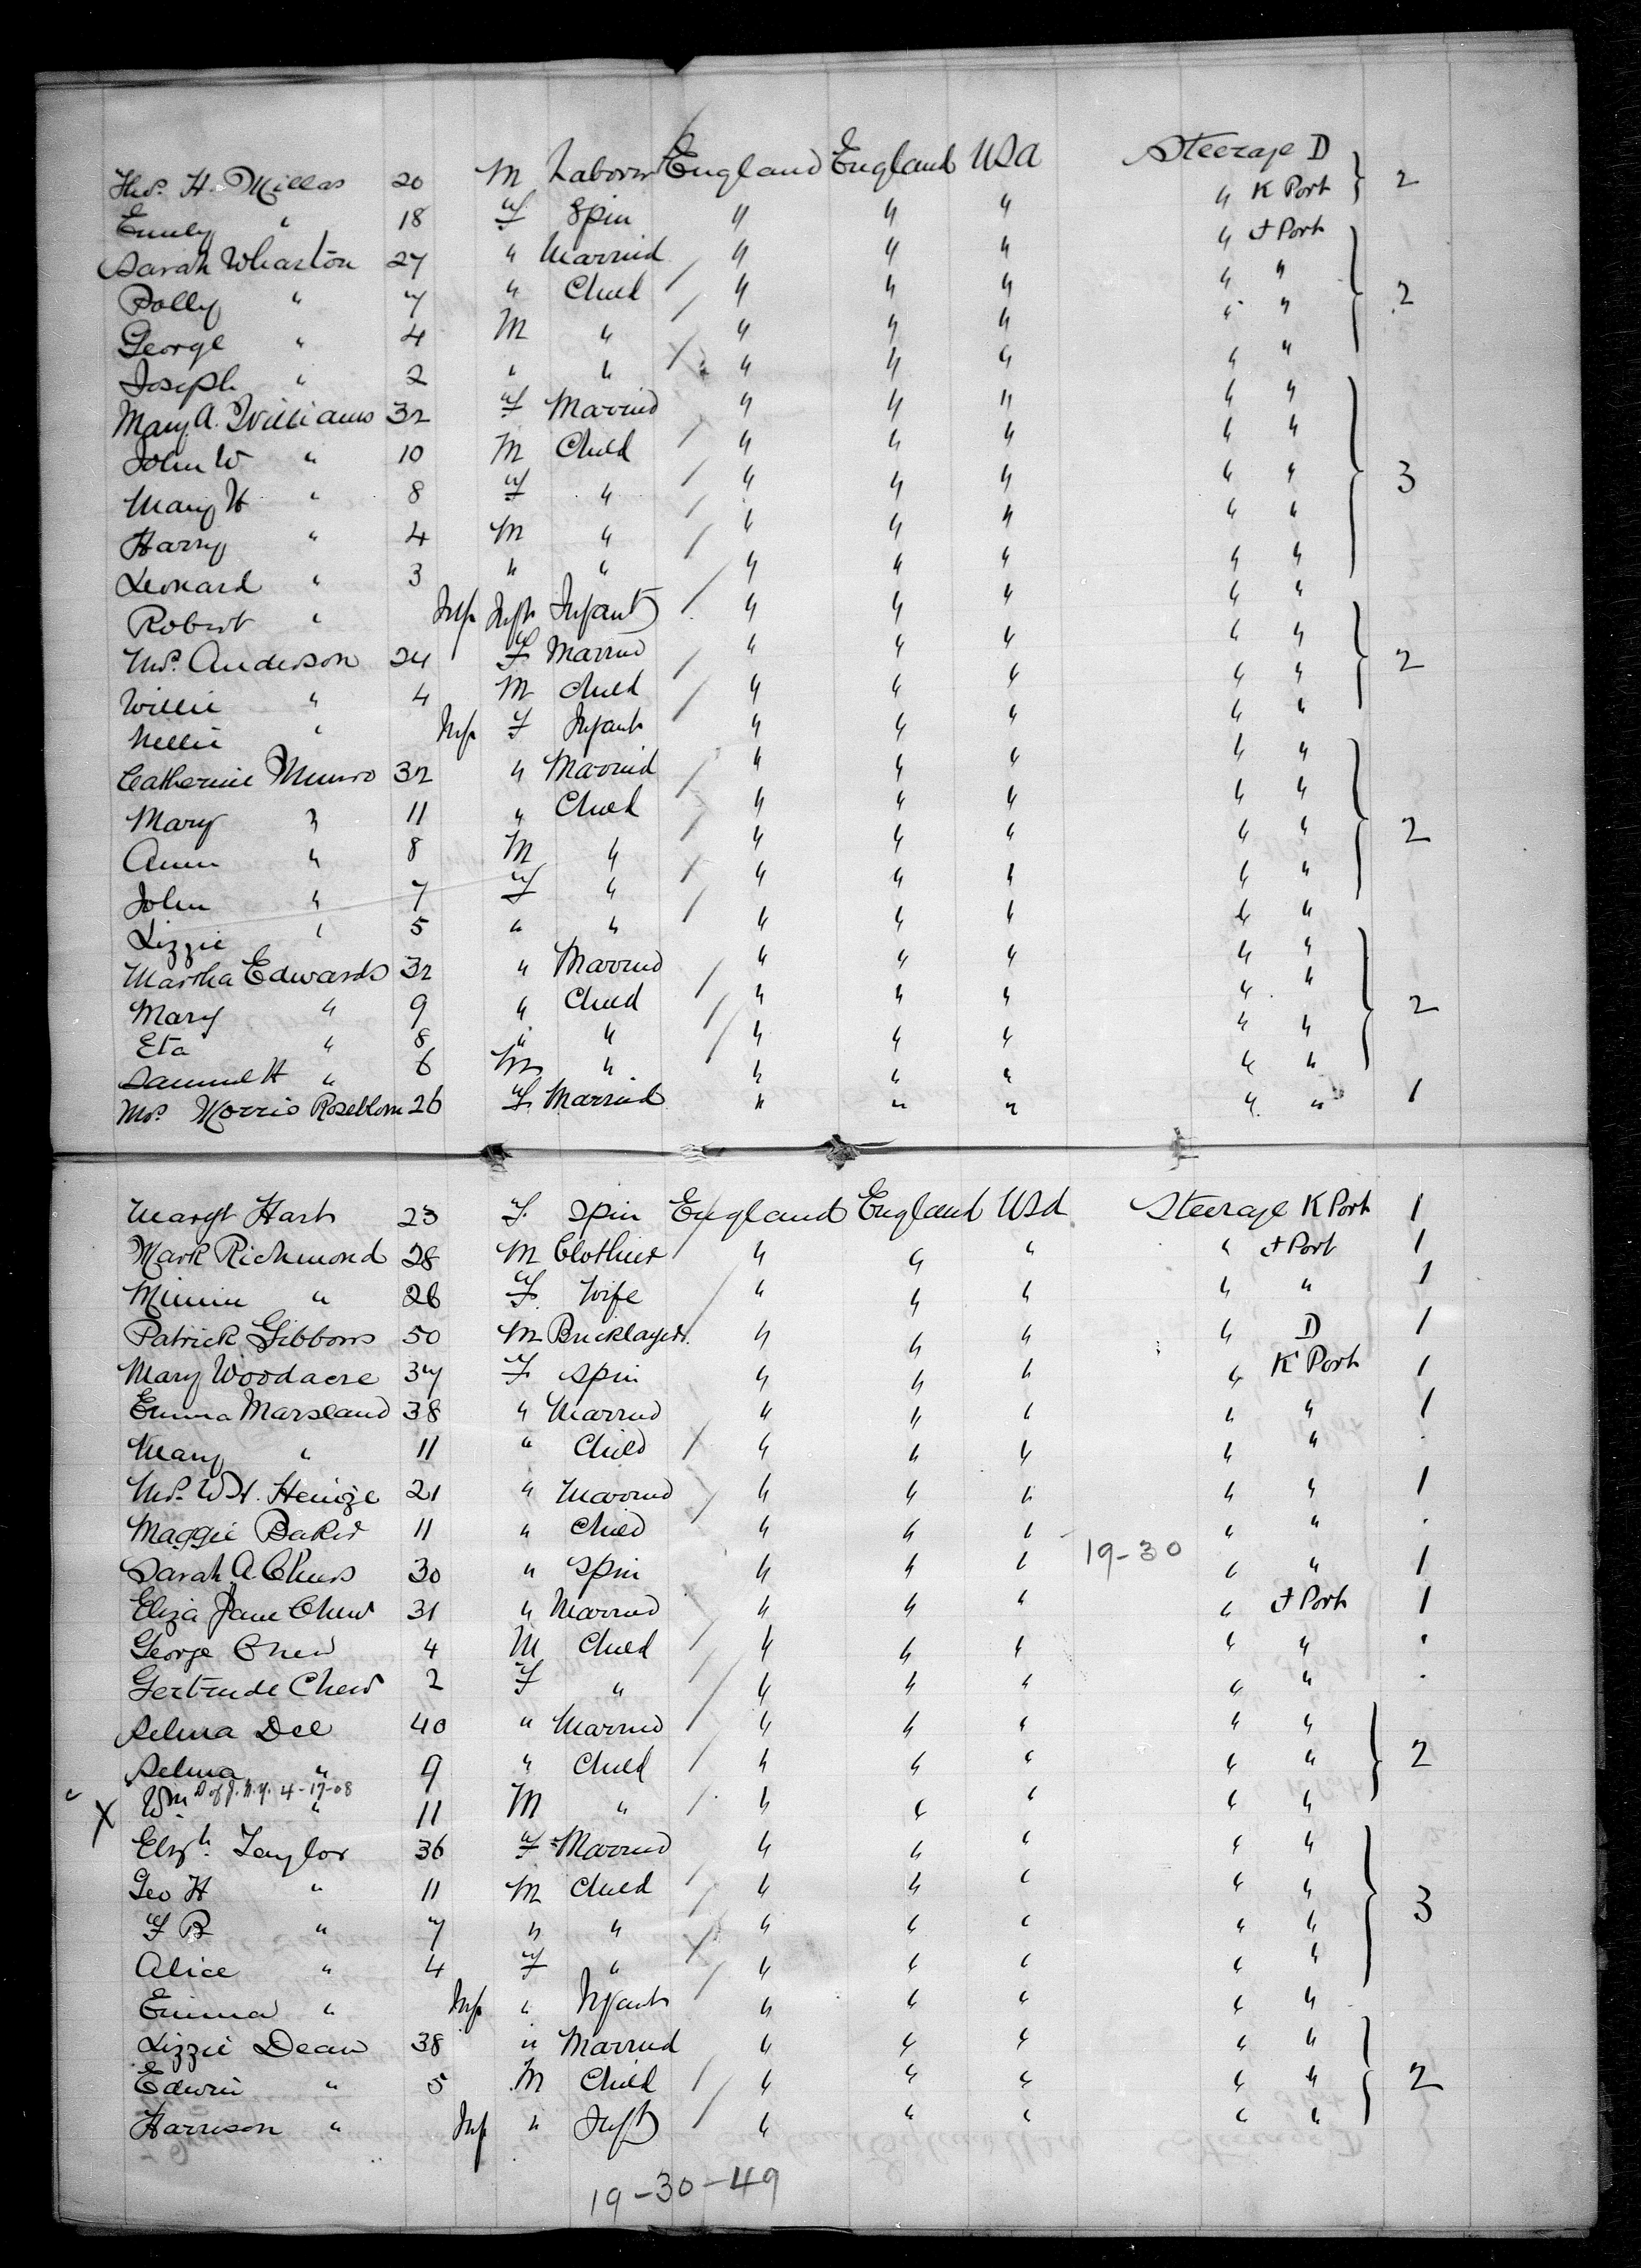 Thos. H. Millas 20 M Laborer England England USA Steerage D 2
Emily " 18 F Spin " " " " K Port
Sarah Wharton 27 " Married " " " " F Port 2
Polly " 7 " Child " " " " "
George " 4 M " " " " " "
Joseph " 2 " " " " " " "
Mary A. Williams 32 F Married " " " " " 3
John W " 10 M Child " " " " "
Mary H " 8 F " " " " " "
Harry " 4 M " " " " " "
Leonard " 3 " " " " " " "
Robert " Inf Inft Infant " " " " "
Mrs. Anderson 24 F Married " " " " " 2
Willie " 4 M Child " " " " "
Nellie " Inf F Infant " " " " "
Catherine Munro 32 " Married " " " " " 2
Mary " 11 " Child " " " " "
Ann " 8 M " " " " " "
John " 7 F " " " " " "
Lizzie " 5 " " " " " " "
Martha Edwards 32 " Married " " " " " 2
Mary " 9 " Child " " " " "
Eta " 8 " " " " " " "
Samuel H " 6 M " " " " " "
Mrs. Morris Roseblom 26 F. Married " " " " " 1
Margt Hart 23 F. Spin England England USA Steerage K Port 1
Mark Richmond 28 M Clothier " " " " F Port 1
Minnie " 26 F. Wife " " " " " 1
Patrick Gibbons 50 M Bricklayer " " " " D 1
Mary Woodacre 37 F Spin " " " " K Port 1
Emma Marsland 38 " Married " " " " " 1
Mary " 11 " Child " " " " "
Mrs. W H. Heinze 21 " Married " " " " " 1
Maggie Baker 11 " Child " " " " "
Sarah A. Chew 30 " Spin " " " 19-30 " " 1
Eliza Jane Chew 31 " Married " " " " F Port 1
George Chew 4 M Child " " " " "
Gertrude Chew 2 F " " " " " "
Selma Dee 40 " Married " " " " " 2
Selma " 9 " Child " " " " "
D of J. N.Y. 4-17-08
X Wm " 11 M " " " " " "
Elizh. Taylor 36 F Married " " " " " 3
Geo H " 11 M Child " " " " "
F B " 7 " " " " " " "
Alice " 4 F " " " " " "
Emma " Inf " Infant " " " " "
Lizzie Dean 38 " Married " " " " " 2
Edwin " 5 M Child " " " " "
Harrison " Inf " Inft " " " " "
19-30-49